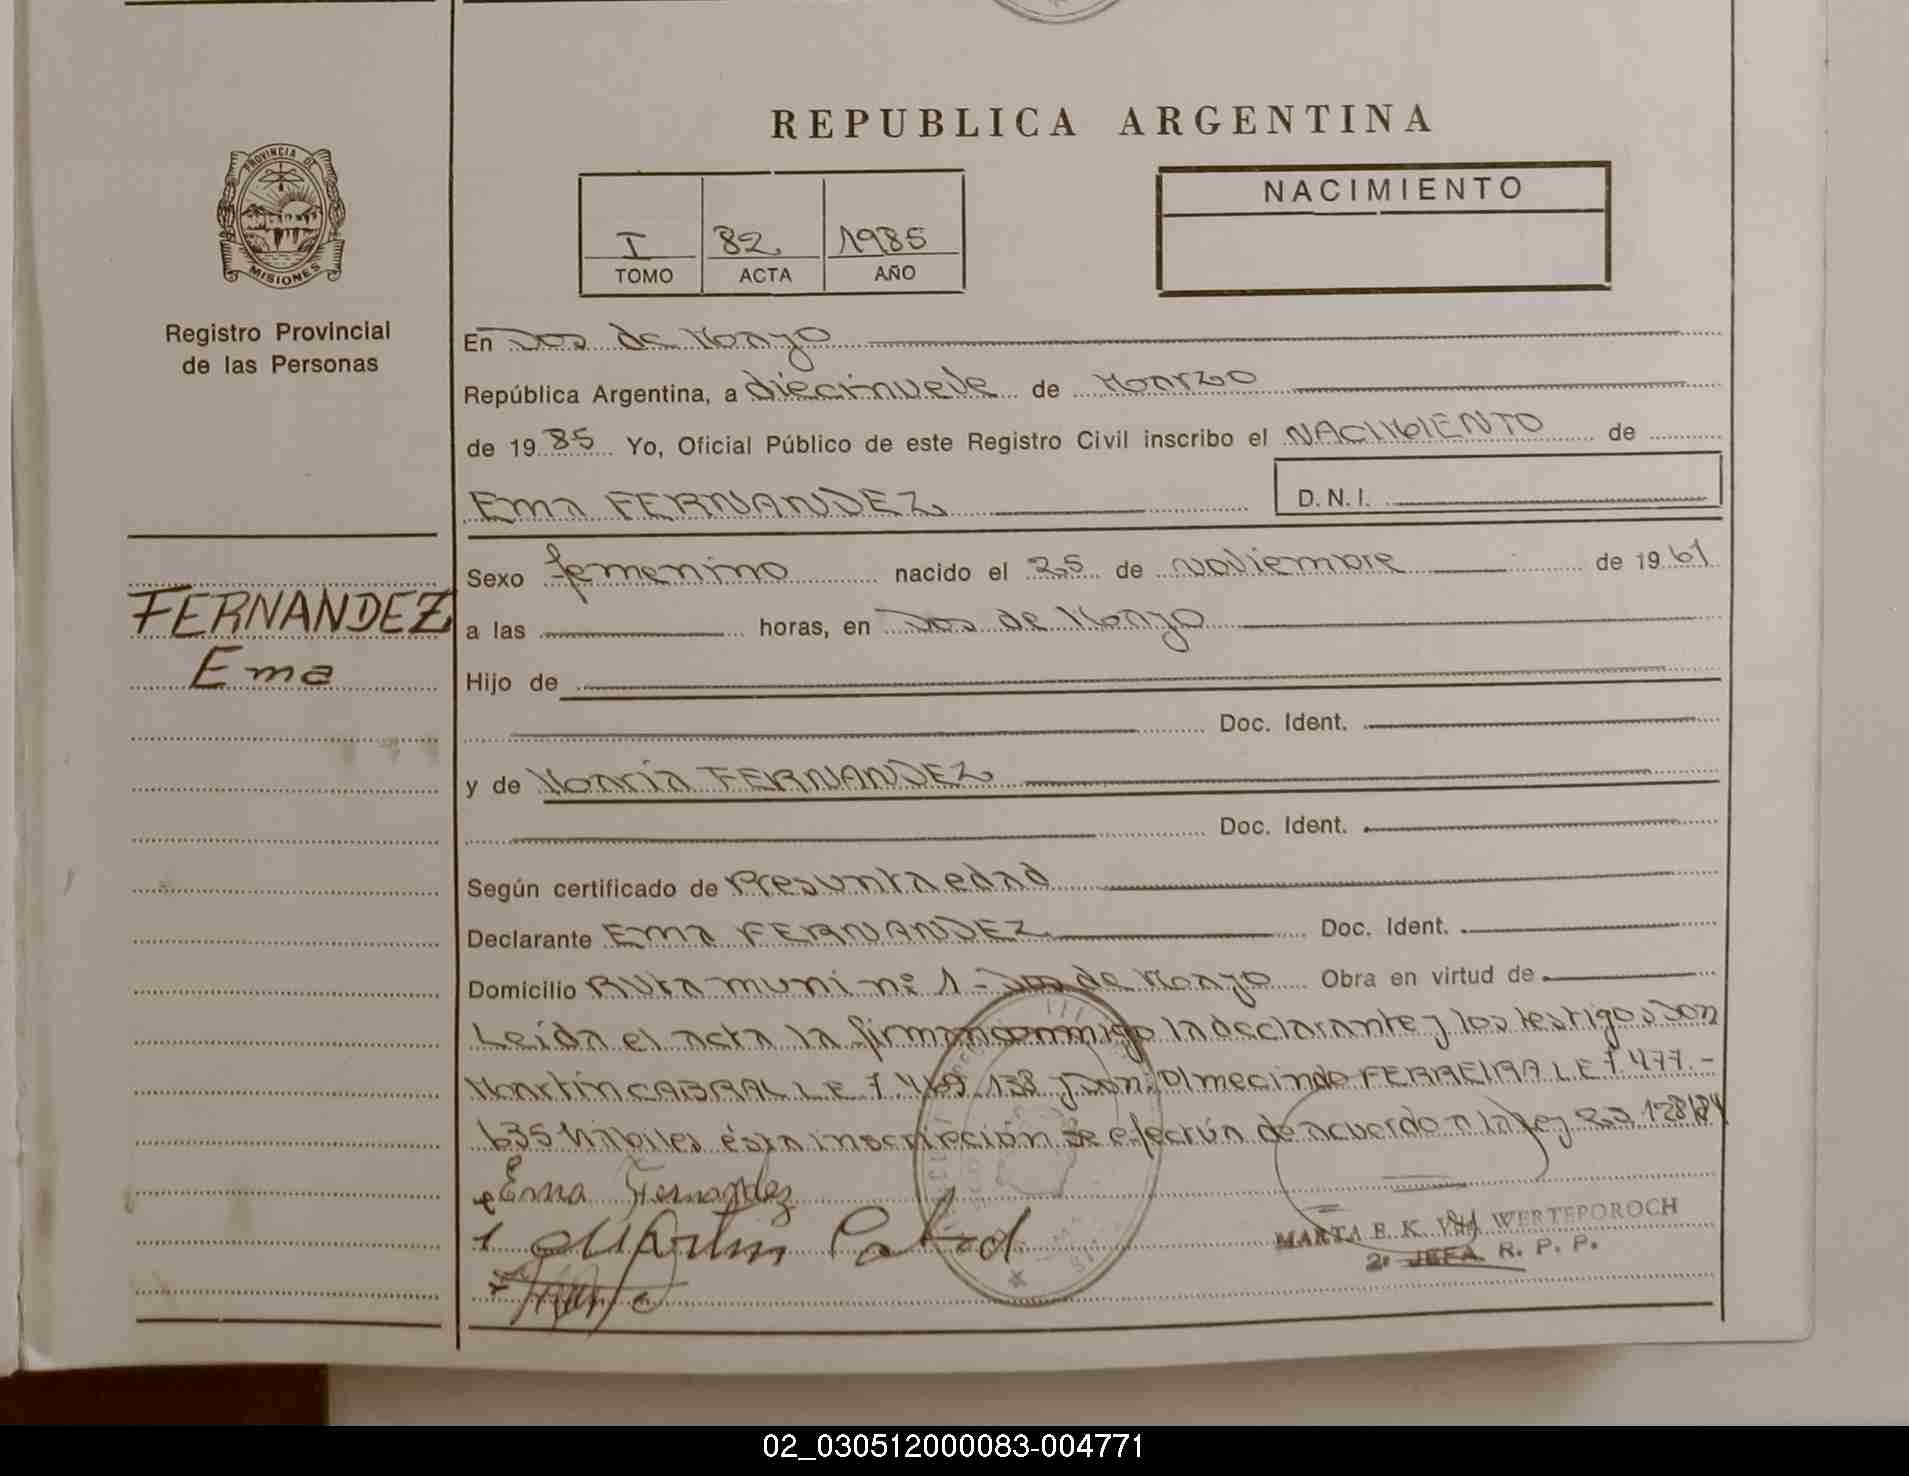 REPUBLICA ARGENTINA
PROVINCIA DE
MISIONES
Registro Provincial
de las Personas
I 82 1985
TOMO ACTA AÑO
NACIMIENTO
En Dos de Mayo
República Argentina, a diecinueve de Marzo
de 1985 Yo, Oficial Público de este Registro Civil inscribo el NACIMIENTO de
Ema FERNANDEZ
D.N.I.
Sexo femenino nacido el 25 de noviembre de 1961
FERNANDEZ
Ema
a las horas, en Dos de Mayo
Hijo de
Doc. Ident.
y de María FERNANDEZ
Doc. Ident.
Según certificado de Presunta edad
Declarante Ema FERNANDEZ Doc. Ident.
Domicilio Ruta muni nº 1 - Dos de Mayo Obra en virtud de
Leída el acta la firman conmigo la declarante y los testigos Don
Martín CABRAL L E 7.469.138 y Don Olmecindo FERREIRA L E 7 477.-
635 hábiles ésta inscripción se efectúa de acuerdo a la ley 23.128/84
Ema Fernandez
Martin Cabral
MARTA E. K. Vda WERTEPOROCH
2º JEFA R. P. P.
02_030512000083-004771